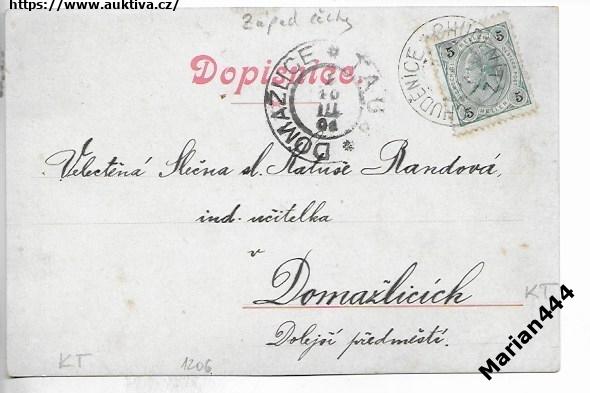 https://www.auktiva.cz/
Západ čechy
Dopisnice.
DOMAŽLICE * TAUS *
5 5
HELLER HELLER
CHUDĚNICE * CHUDENITZ
5 5
Velectěná Slečna sl. Matuše Randová,
ind. učitelka
v
Domažlicích
Dolejší předměstí.
KT
KT
1206
Marian444